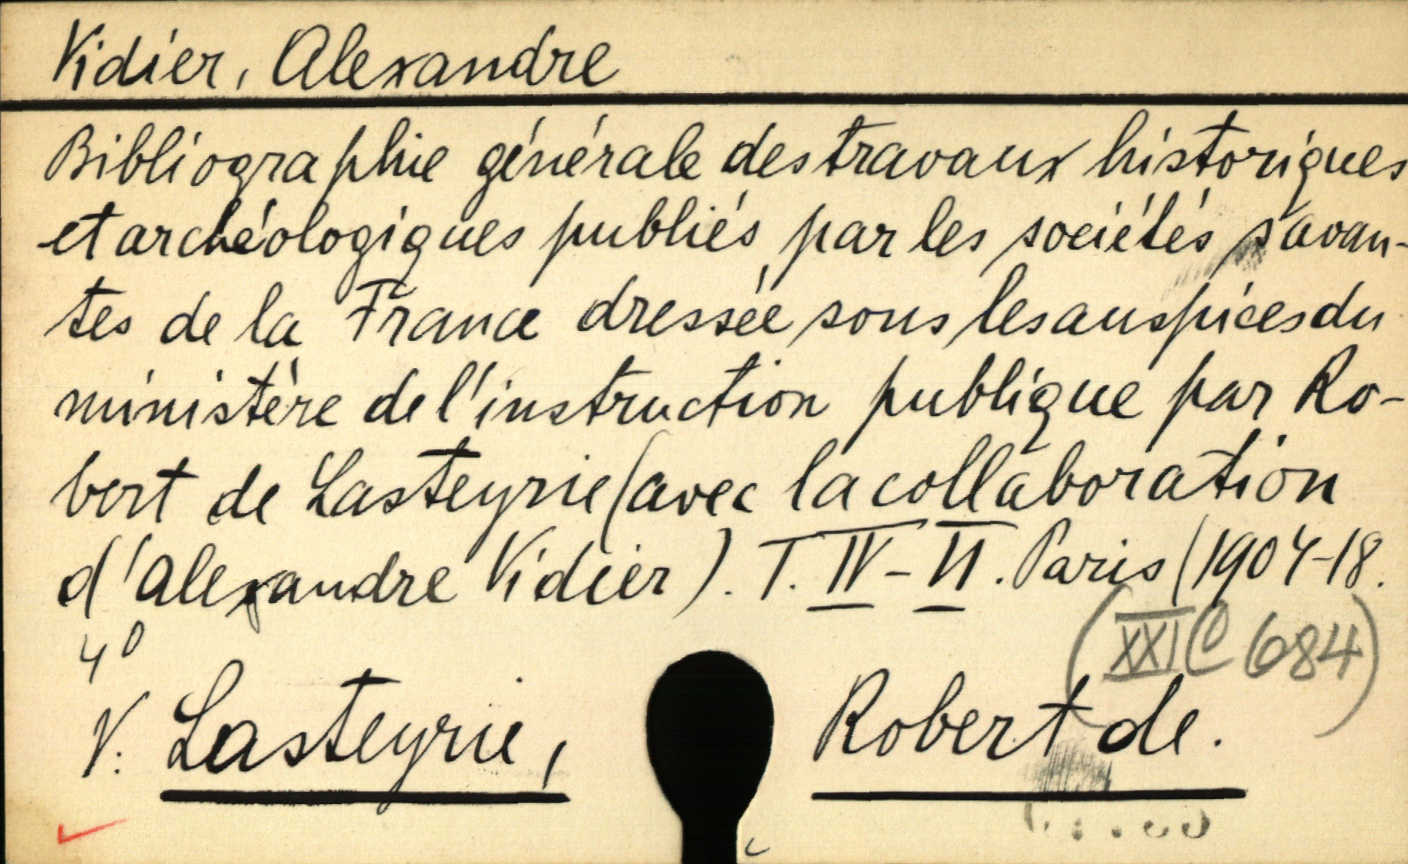 Vidier, Alexandre
Bibliographie générale des travaux historiques
et archéologiques publiés par les sociétés savan-
tes de la France dressée sous les auspices du
ministère de l'instruction publique par Ro-
bert de Lasteyrie (avec la collaboration
d'Alexandre Vidier). T. IV-VI. Paris (1904-18.
4º
(XXI C 684)
V. Lasteyrie, Robert de.